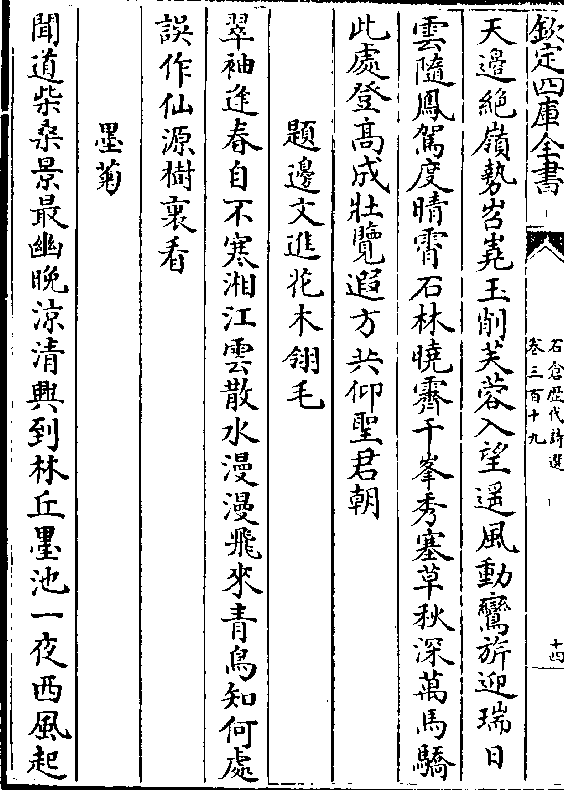 欽定四庫全書
石倉歷代詩選
卷三百十九
十四
天邊絶嶺勢岧嶤玉削芙蓉入望遥風動鸞旂迎瑞日
雲隨鳳駕度晴霄石林曉霽千峯秀塞草秋深萬馬驕
此處登髙成壯覽遐方共仰聖君朝
題邊文進花木翎毛
翠袖逢春自不寒湘江雲散水漫漫飛來青鳥知何處
誤作仙源樹裏看
墨菊
聞道柴桑景最幽晚凉清興到林丘墨池一夜西風起